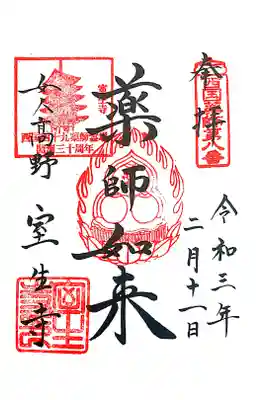 奉拝
西国薬師第八番
令和三年
二月十一日
薬師如来
三十周年
女人高野 室生寺